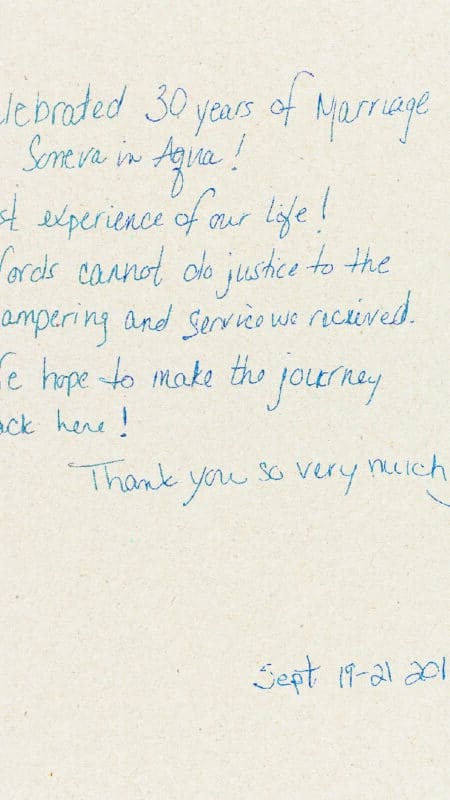 lebrated 30 years of Marriage
Soneva in Aqua!
st experience of our life!
ords cannot do justice to the
ampering and service we recieved.
e hope to make the journey
ack here!
Thank you so very much
Sept 19-21 201